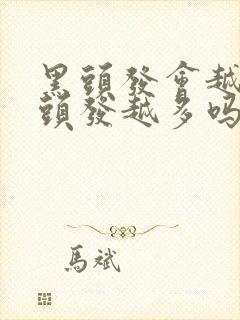 黑頭發會越
頭發越多吗
馬斌